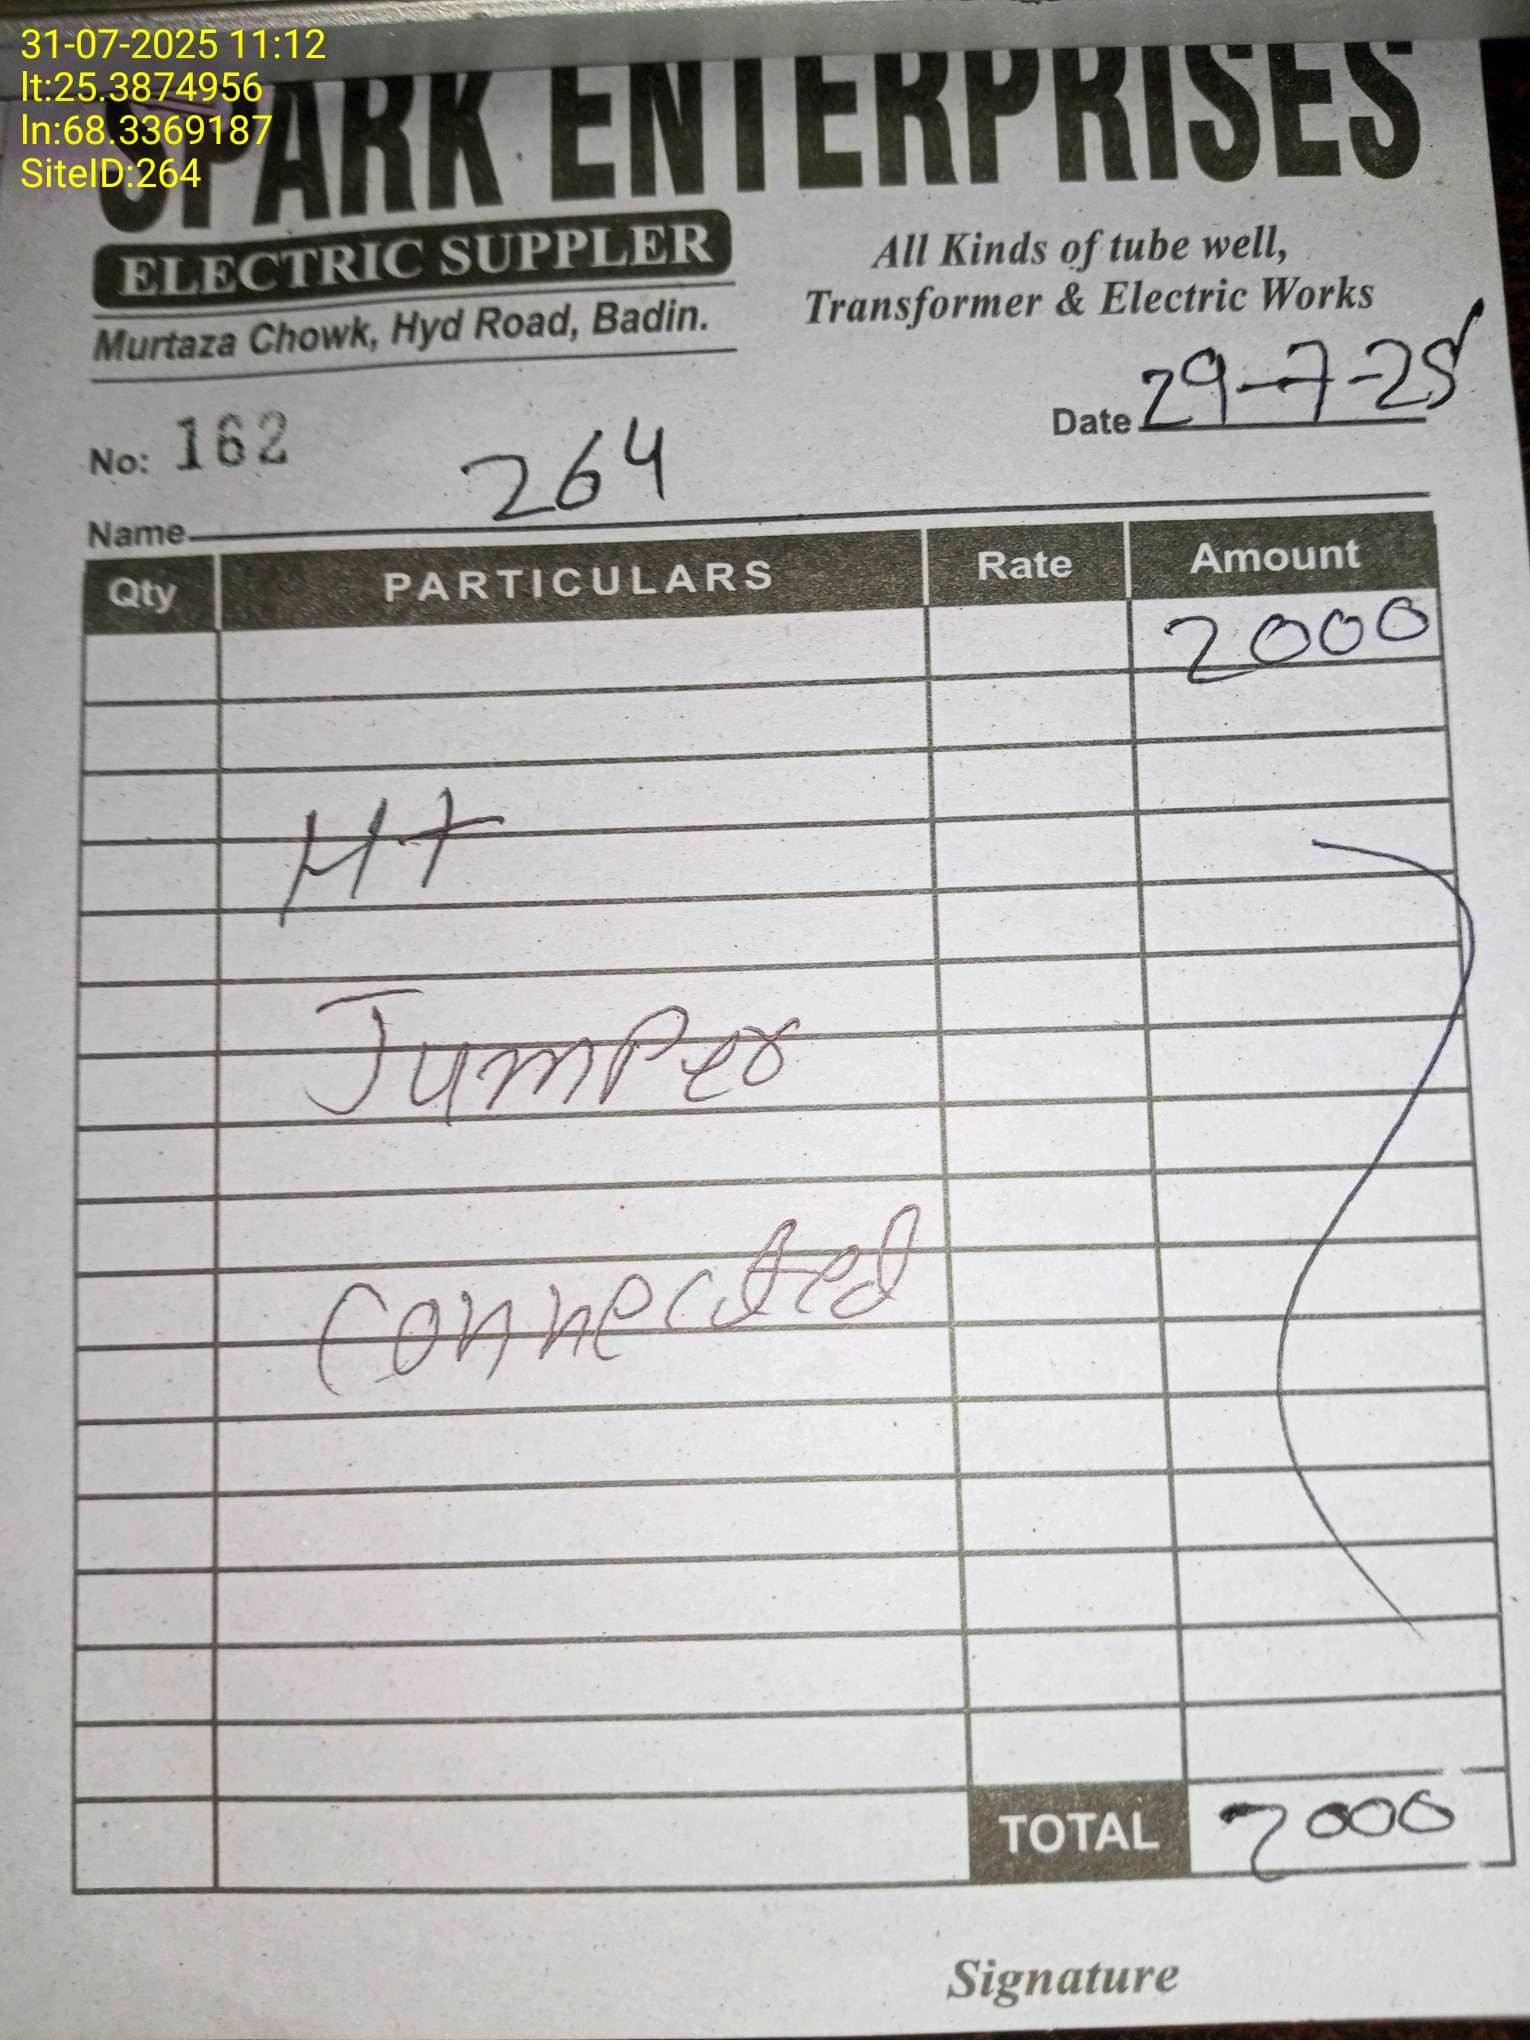 31-07-2025 11:12
lt:25.3874956
ln:68.3369187
SiteID:264
SPARK ENTERPRISES
ELECTRIC SUPPLER
Murtaza Chowk, Hyd Road, Badin.
All Kinds of tube well,
Transformer & Electric Works
No: 162
Date 29-7-25
Name 264
Qty PARTICULARS Rate Amount
2000
Ht
Jumper
connected
TOTAL 2000
Signature